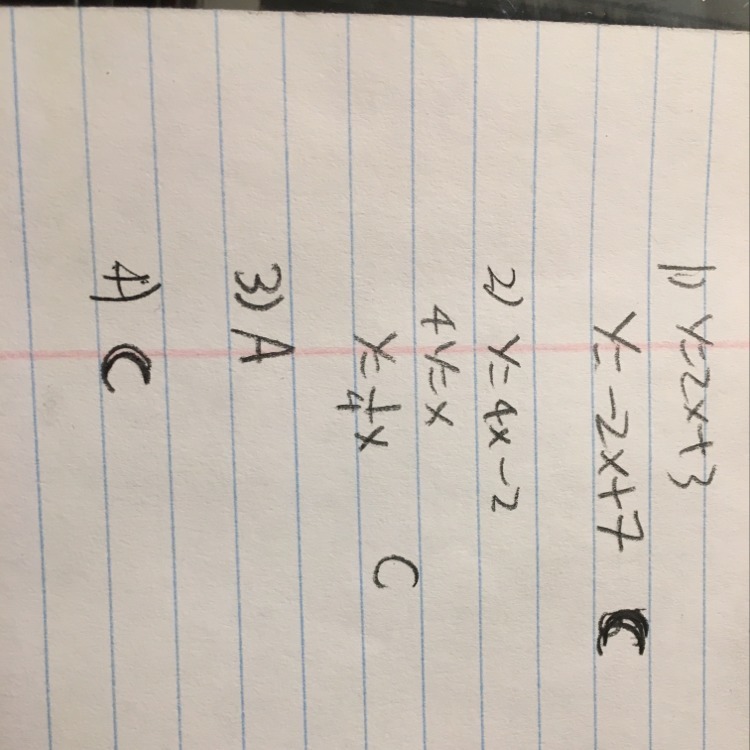 1) y=2x+3
y=-2x+7 C
2) y=4x-2
4y=x
y=1/4x C
3) A
4) C